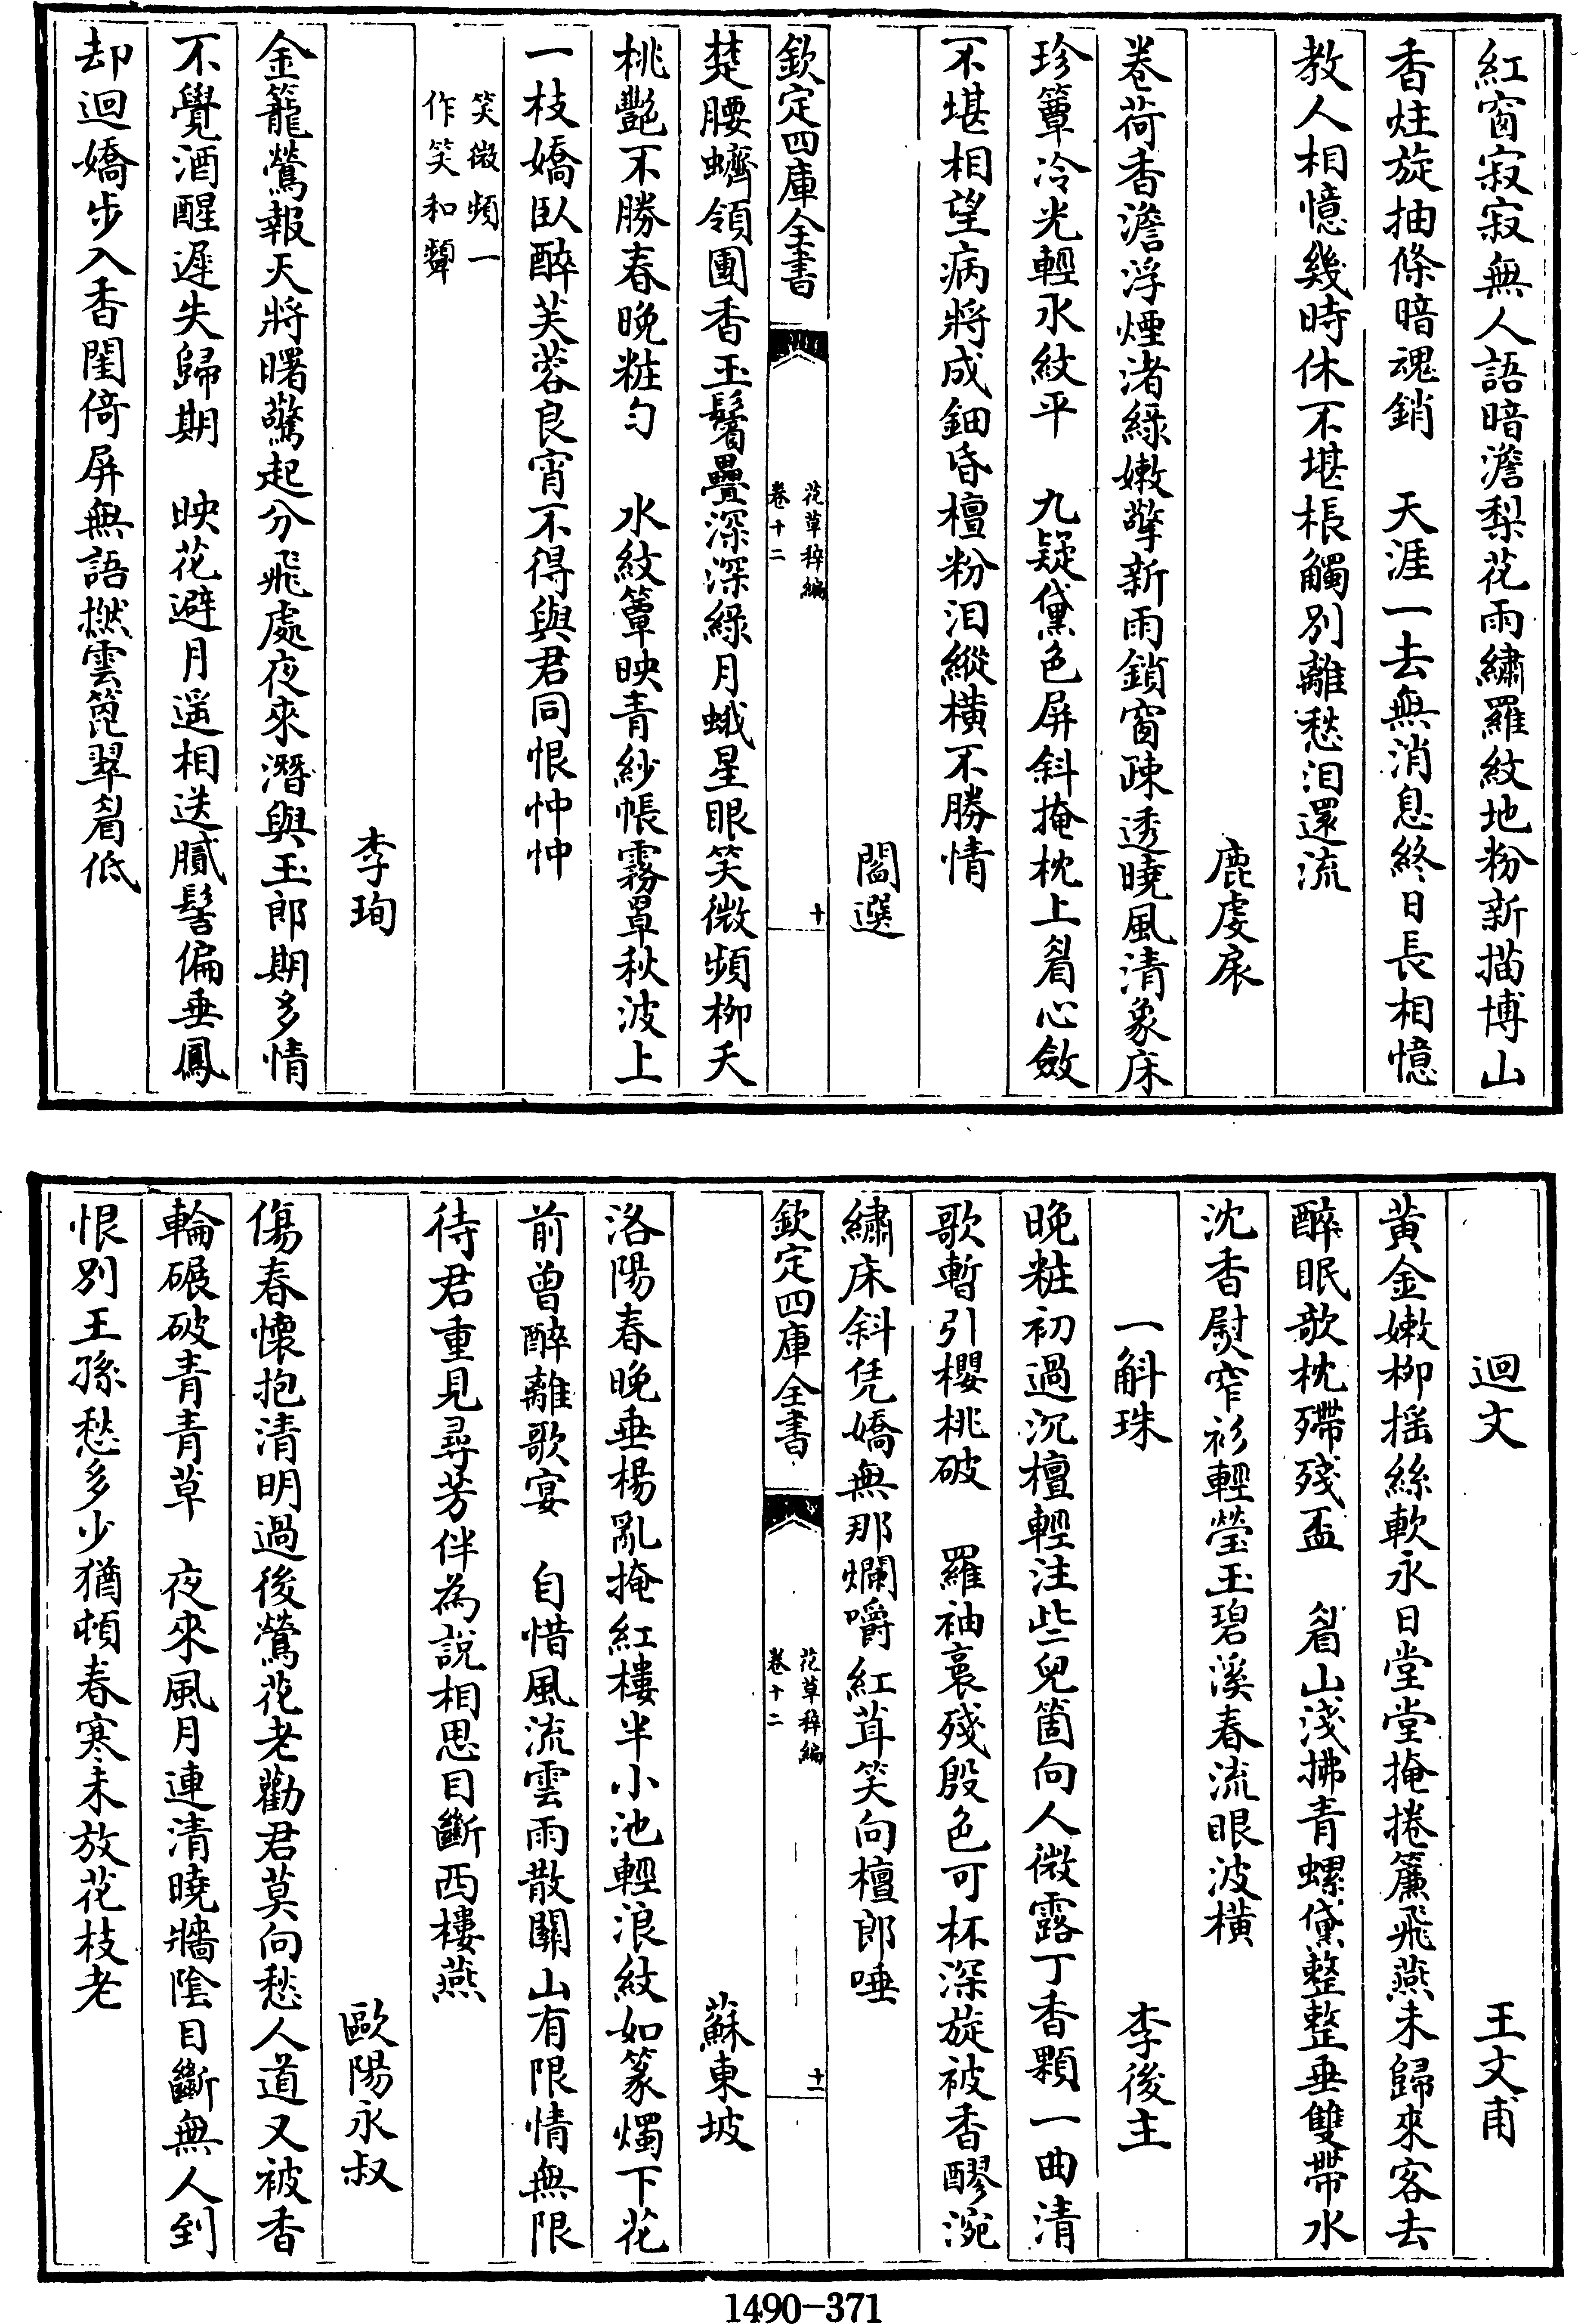 紅窗寂寂無人語暗澹梨花雨繡羅紋地粉新描博山
香炷旋抽條暗魂銷　天涯一去無消息終日長相憶
教人相憶幾時休不堪棖觸別離愁泪還流
鹿虔扆
卷荷香澹浮煙渚綠嫩擎新雨鎖窗疎透曉風清象床
珍簟冷光輕水紋平　九疑黛色屏斜掩枕上眉心斂
不堪相望病將成鈿昏檀粉泪縱橫不勝情
閻選
欽定四庫全書
花草稡編
卷十二
十
楚腰蠐領團香玉鬢疊深深綠月蛾星眼笑微頻柳夭
桃艷不勝春晚粧勻　水紋簟映青紗帳霧罩秋波上
一枝嬌臥醉芙蓉良宵不得與君同恨忡忡
笑微頻一
作笑和顰
李珣
金籠鶯報天將曙驚起分飛處夜來潛與玉郎期多情
不覺酒醒遲失歸期　映花避月遥相送膩髻偏垂鳳
却迴嬌步入香閨倚屏無語撚雲篦翠眉低
迴文　王文甫
黄金嫩柳揺絲軟永日堂堂掩捲簾飛燕未歸來客去
醉眠欹枕殢殘盃　眉山淺拂青螺黛整整垂雙帶水
沈香熨窄衫輕瑩玉碧溪春流眼波橫
一斛珠　李後主
晚粧初過沉檀輕注些兒箇向人微露丁香顆一曲清
歌暫引櫻桃破　羅袖裛殘殷色可杯深旋被香醪涴
繡床斜凭嬌無那爛嚼紅茸笑向檀郎唾
欽定四庫全書
花草稡編
卷十二
十一
蘇東坡
洛陽春晚垂楊亂掩紅樓半小池輕浪紋如篆燭下花
前曾醉離歌宴　自惜風流雲雨散關山有限情無限
待君重見尋芳伴為說相思目斷西樓燕
歐陽永叔
傷春懷抱清明過後鶯花老勸君莫向愁人道又被香
輪碾破青青草　夜來風月連清曉牆陰目斷無人到
恨別王孫愁多少猶頓春寒未放花枝老
1490-371